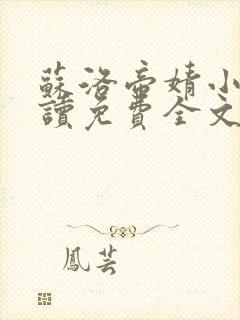 蘇洛帝婧小
讀免費全文
鳳芸